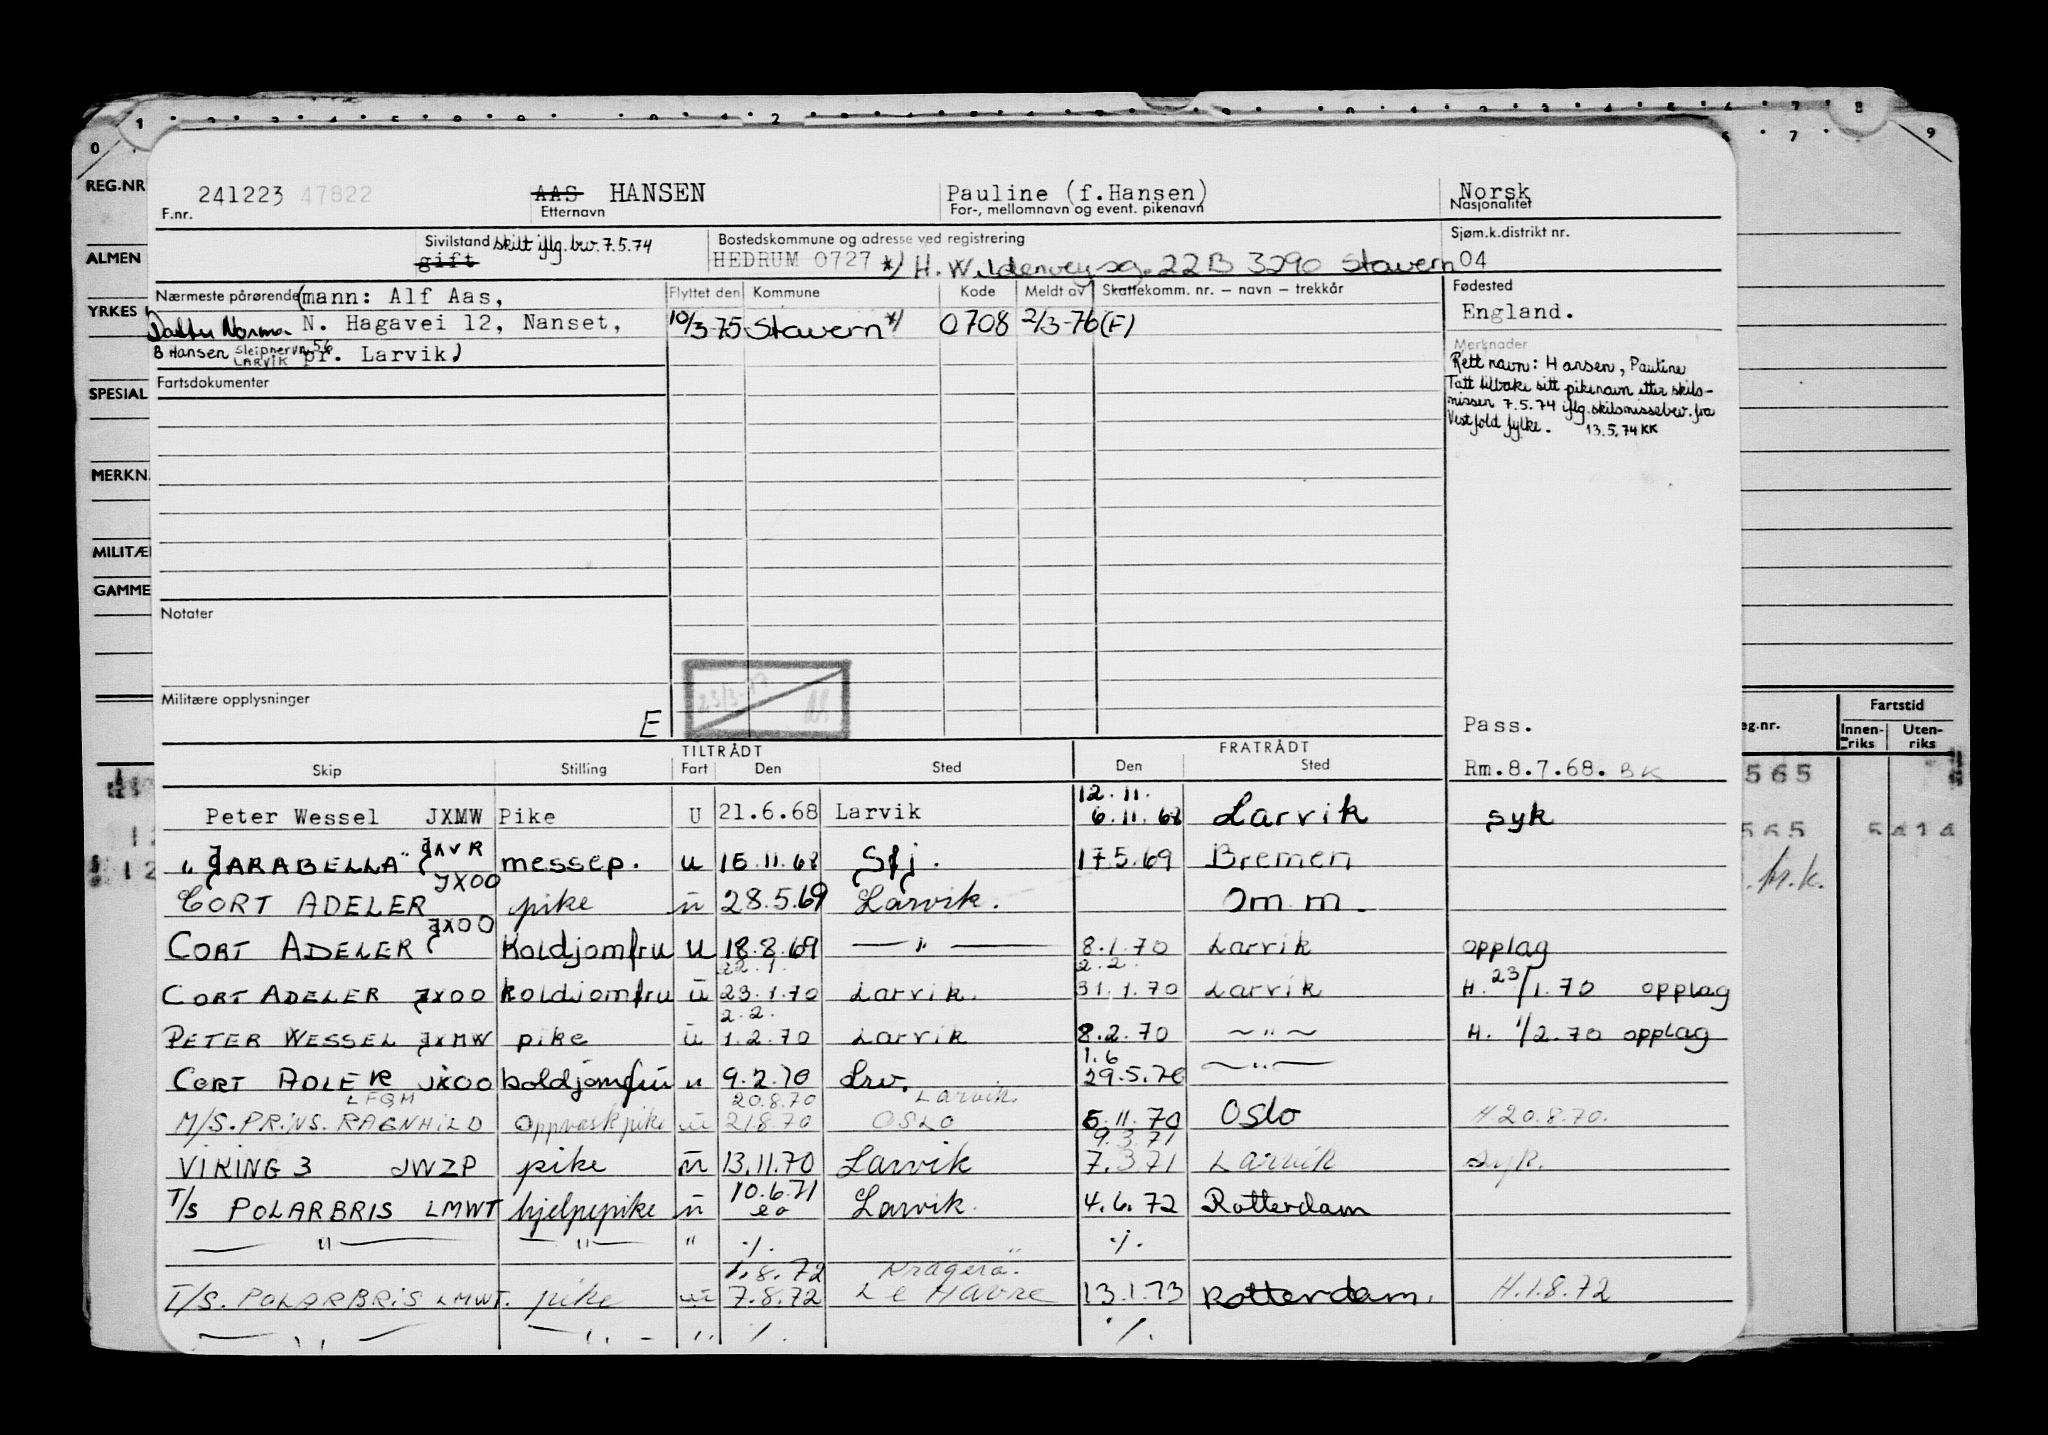 0 1 2 7 8 9
REG.NR
ALMEN
YRKES
SPESIAL
MERKN.
MILITÆ
GAMME
241223 47822 AAS HANSEN Pauline (f.Hansen) Norsk
F.nr. Etternavn For-, mellomnavn og event. pikenavn Nasjonalitet
Sivilstand skilt iflg. bev. 7.5.74 Bostedskommune og adresse ved registrering Sjøm.k.distrikt nr.
gift HEDRUM 0727 */ H. Wildenveysg. 22B 3290 Stavern 04
Nærmeste pårørende (mann: Alf Aas, Flyttet den Kommune Kode Meldt av Skattekomm. nr. – navn – trekkår Fødested
Datter Norma N. Hagavei 12, Nanset, 10/3-75 Stavern */ 0708 2/3-76 (F) England.
B Hansen Sleipnervn 56 LARVIK pr. Larvik) Merknader
Rett navn: Hansen, Pauline
Fartsdokumenter Tatt tilbake sitt pikenavn etter skils-
missen 7.5.74 iflg. skilsmissebev. fra
Vestfold fylke. 13.5.74 KK
Notater
Militære opplysninger
E 23/3-
Pass.
TILTRÅDT FRATRÅDT
Skip Stilling Fart Den Sted Den Sted Rm.8.7.68. BK
Peter Wessel JXMW Pike U 21.6.68 Larvik 12.11. 6.11.68 Larvik syk
" JARABELLA" messep. u 15.11.68 Sfj. 17.5.69 Bremen
CORT ADELER JXOO pike ū 28.5.69 Larvik. Om m.
CORT ADELER JXOO Koldjomfru u 18.8.69 — " — 8.1.70 Larvik opplag
CORT ADELER JXOO koldjomfru ū 22.1. 23.1.70 Larvik. 2.2. 31.1.70 Larvik H. 23/1.70 opplag
PETER WESSEL JXMW pike ū 2.2. 1.2.70 Larvik 8.2.70 ~ " ~ H. 1/2.70 opplag
CORT ADLER JXOO koldjomfru u 9.2.70 Lrv. 1.6 29.5.70 — " —
LFQM 20.8.70 Larvik.
M/S. PRINS. RAGNHILD Oppvaskpike ū 21.8.70 OSLO 5.11.70 Oslo H 20.8.70.
VIKING 3 JWZP pike ū 13.11.70 Larvik 9.3.71 7.3.71 Larvik syk.
T/S POLARBRIS LMWT hjelpepike ū 10.6.71 Larvik 4.6.72 Rotterdam
— " — — " — " ·/. ·/.
1.8.72 Kragerö.
T/S. POLARBRIS LMWT. pike ū 7.8.72 Le Havre 13.1.73 Rotterdam. H.1.8.72
— " — — " — " ·/. ·/.
eg.nr. Fartstid
Innen-riks Uten-riks
565
565 5414